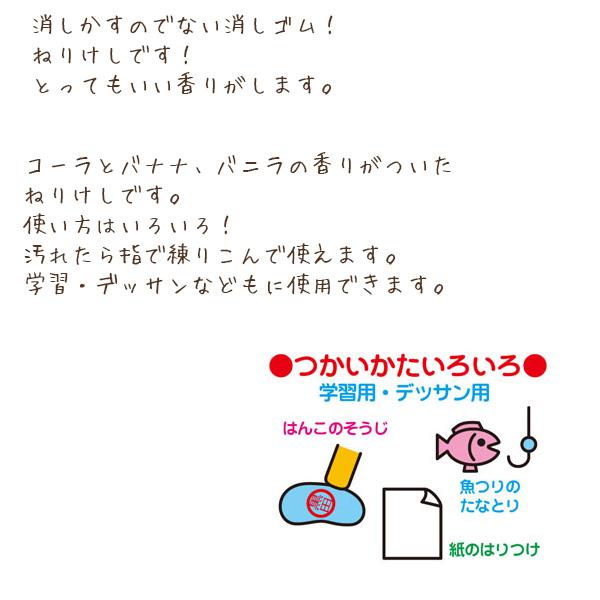 消しかすのでない消しゴム！
ねりけしです！
とってもいい香りがします。
コーラとバナナ、バニラの香りがついた
ねりけしです。
使い方はいろいろ！
汚れたら指で練りこんで使えます。
学習・デッサンなどもに使用できます。
●つかいかたいろいろ●
学習用・デッサン用
はんこのそうじ
魚つりの
たなとり
紙のはりつけ